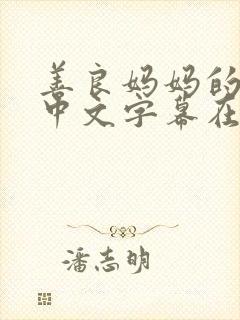 善良妈妈的
中文字幕在
潘志明